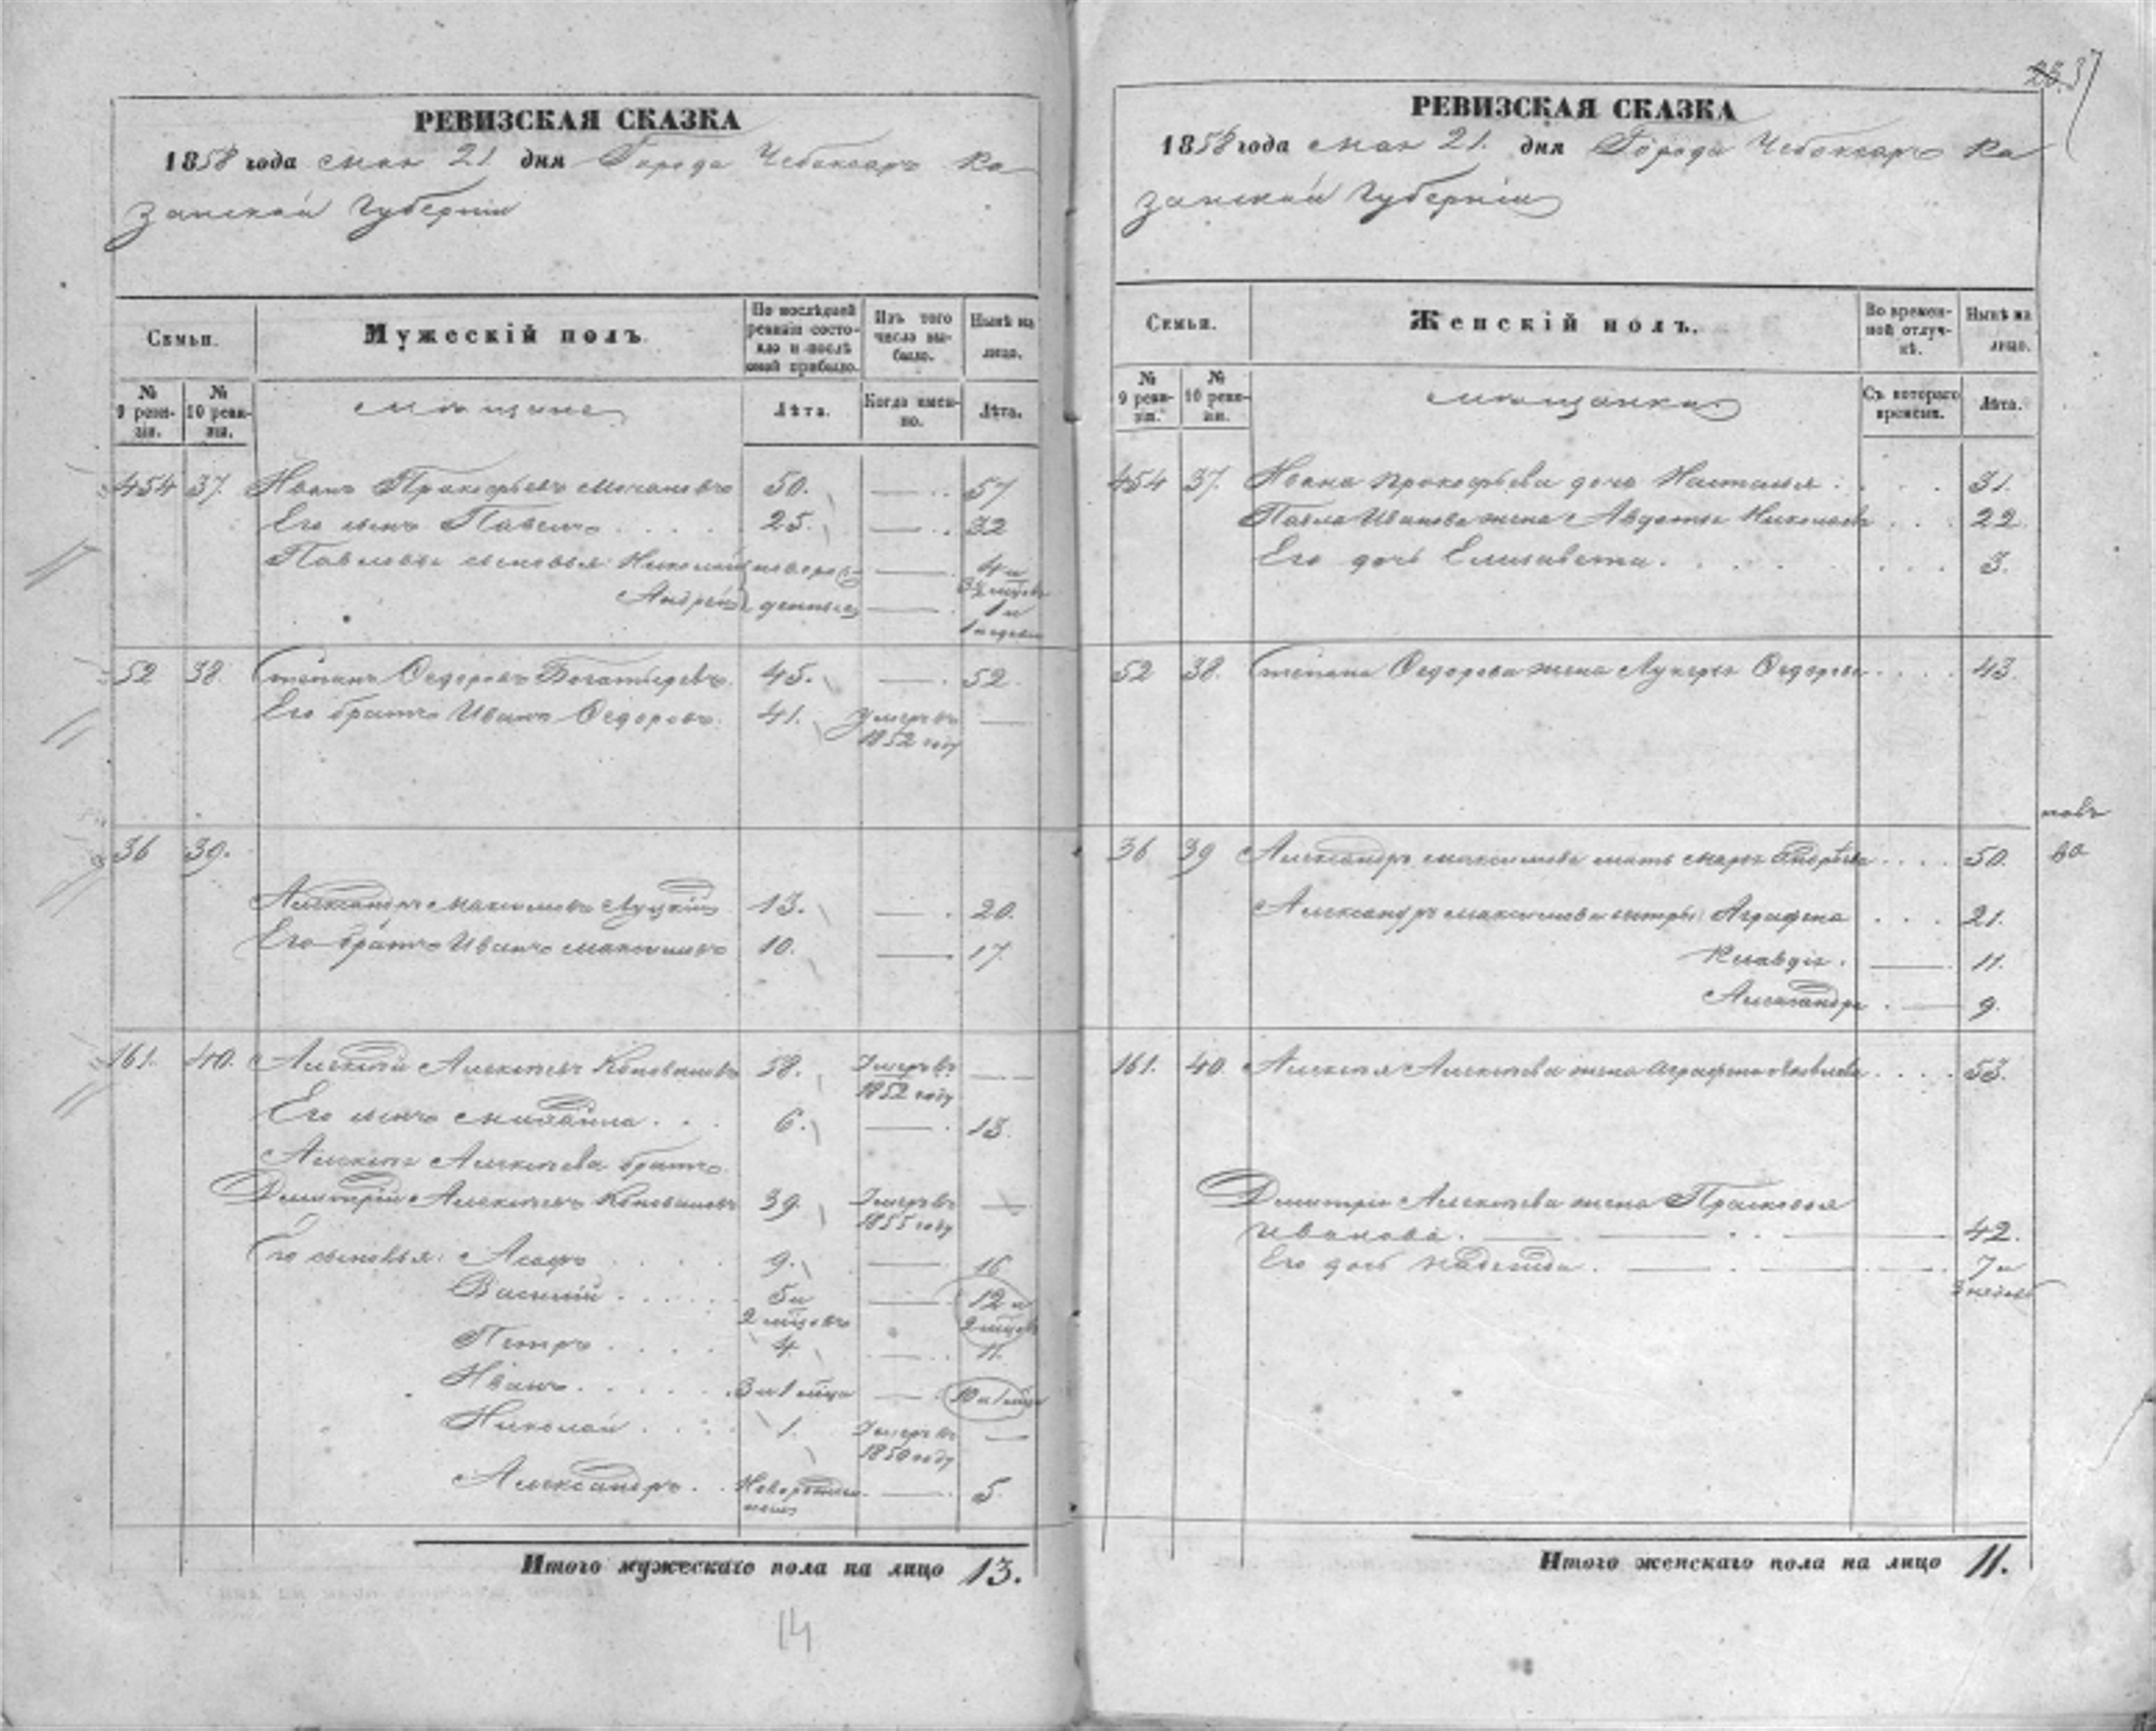 РЕВИЗСКАЯ СКАЗКА
1858 года мая 21 дня Города Чебоксаръ Ка
занской Губерніи
Семьи.
Мужескій полъ.
По послѣдней ревизіи состояло и послѣ оной прибыло.
Изъ того числа выбыло.
Нынѣ на лицо.
№ 9 ревизіи.
№ 10 ревизіи.
мѣщане
Лѣта.
Когда именно.
Лѣта.
454 37. Иванъ Прокофьевъ 50. — 57
Его сынъ Павелъ 25. — 32
Павловы сыновья: Николай новорож — 4 и
Андрей денные — 1 и
52 38. Степанъ Ѳедоровъ 45. — 52
Его братъ Иванъ Ѳедоровъ 41. Умеръ въ —
1852 году
36 39.
Александръ Максимовъ Луцкій 13. — 20.
Его братъ Иванъ Максимовъ 10. — 17.
161. 40. Алексѣй Алексѣевъ Коноваловъ 58. Умеръ въ —
1852 году
Его сынъ Михайла 6. — 13.
Алексѣя Алексѣева братъ
Дмитрій Алексѣевъ Коноваловъ 39. Умеръ въ —
1855 году
Его сыновья: Асафъ 9. — 16
Василій 5 и — 12 и
2 мѣсцовъ 2 мѣсцовъ
Петръ 4. — 11.
Иванъ 3 и 1 мѣсца — 10 и 1 мѣсца
Николай 1. Умеръ въ —
1850 году
Александръ. Новорожден — 5.
ный
Итого мужескаго пола на лицо 13.
14
РЕВИЗСКАЯ СКАЗКА
1858 года мая 21. дня Города Чебоксаръ Ка
занской Губерніи
Семьи.
Женскій полъ.
Во временной отлучкѣ.
Нынѣ на лицо.
№ 9 ревизіи.
№ 10 ревизіи.
мѣщанки.
Съ котораго времени.
Лѣта.
454 37. Ивана Прокофьева дочь Наталья 31.
Павла Иванова жена Авдотья Николаева 22
Его дочь Елизавета. 3.
52 38. Степана Ѳедорова жена Лукерья Ѳедорова 43
36 39 Александра Максимова мать Марья 50.
Александра Максимова сестры: Аграфена 21.
Клавдія. — 11.
Александра — 9.
161. 40. Алексѣя Алексѣева жена Аграфена Яковлева 53.
Дмитрія Алексѣева жена Прасковья
Иванова. — 42.
Его дочь Надежда. — 7 и
Итого женскаго пола на лицо 11.